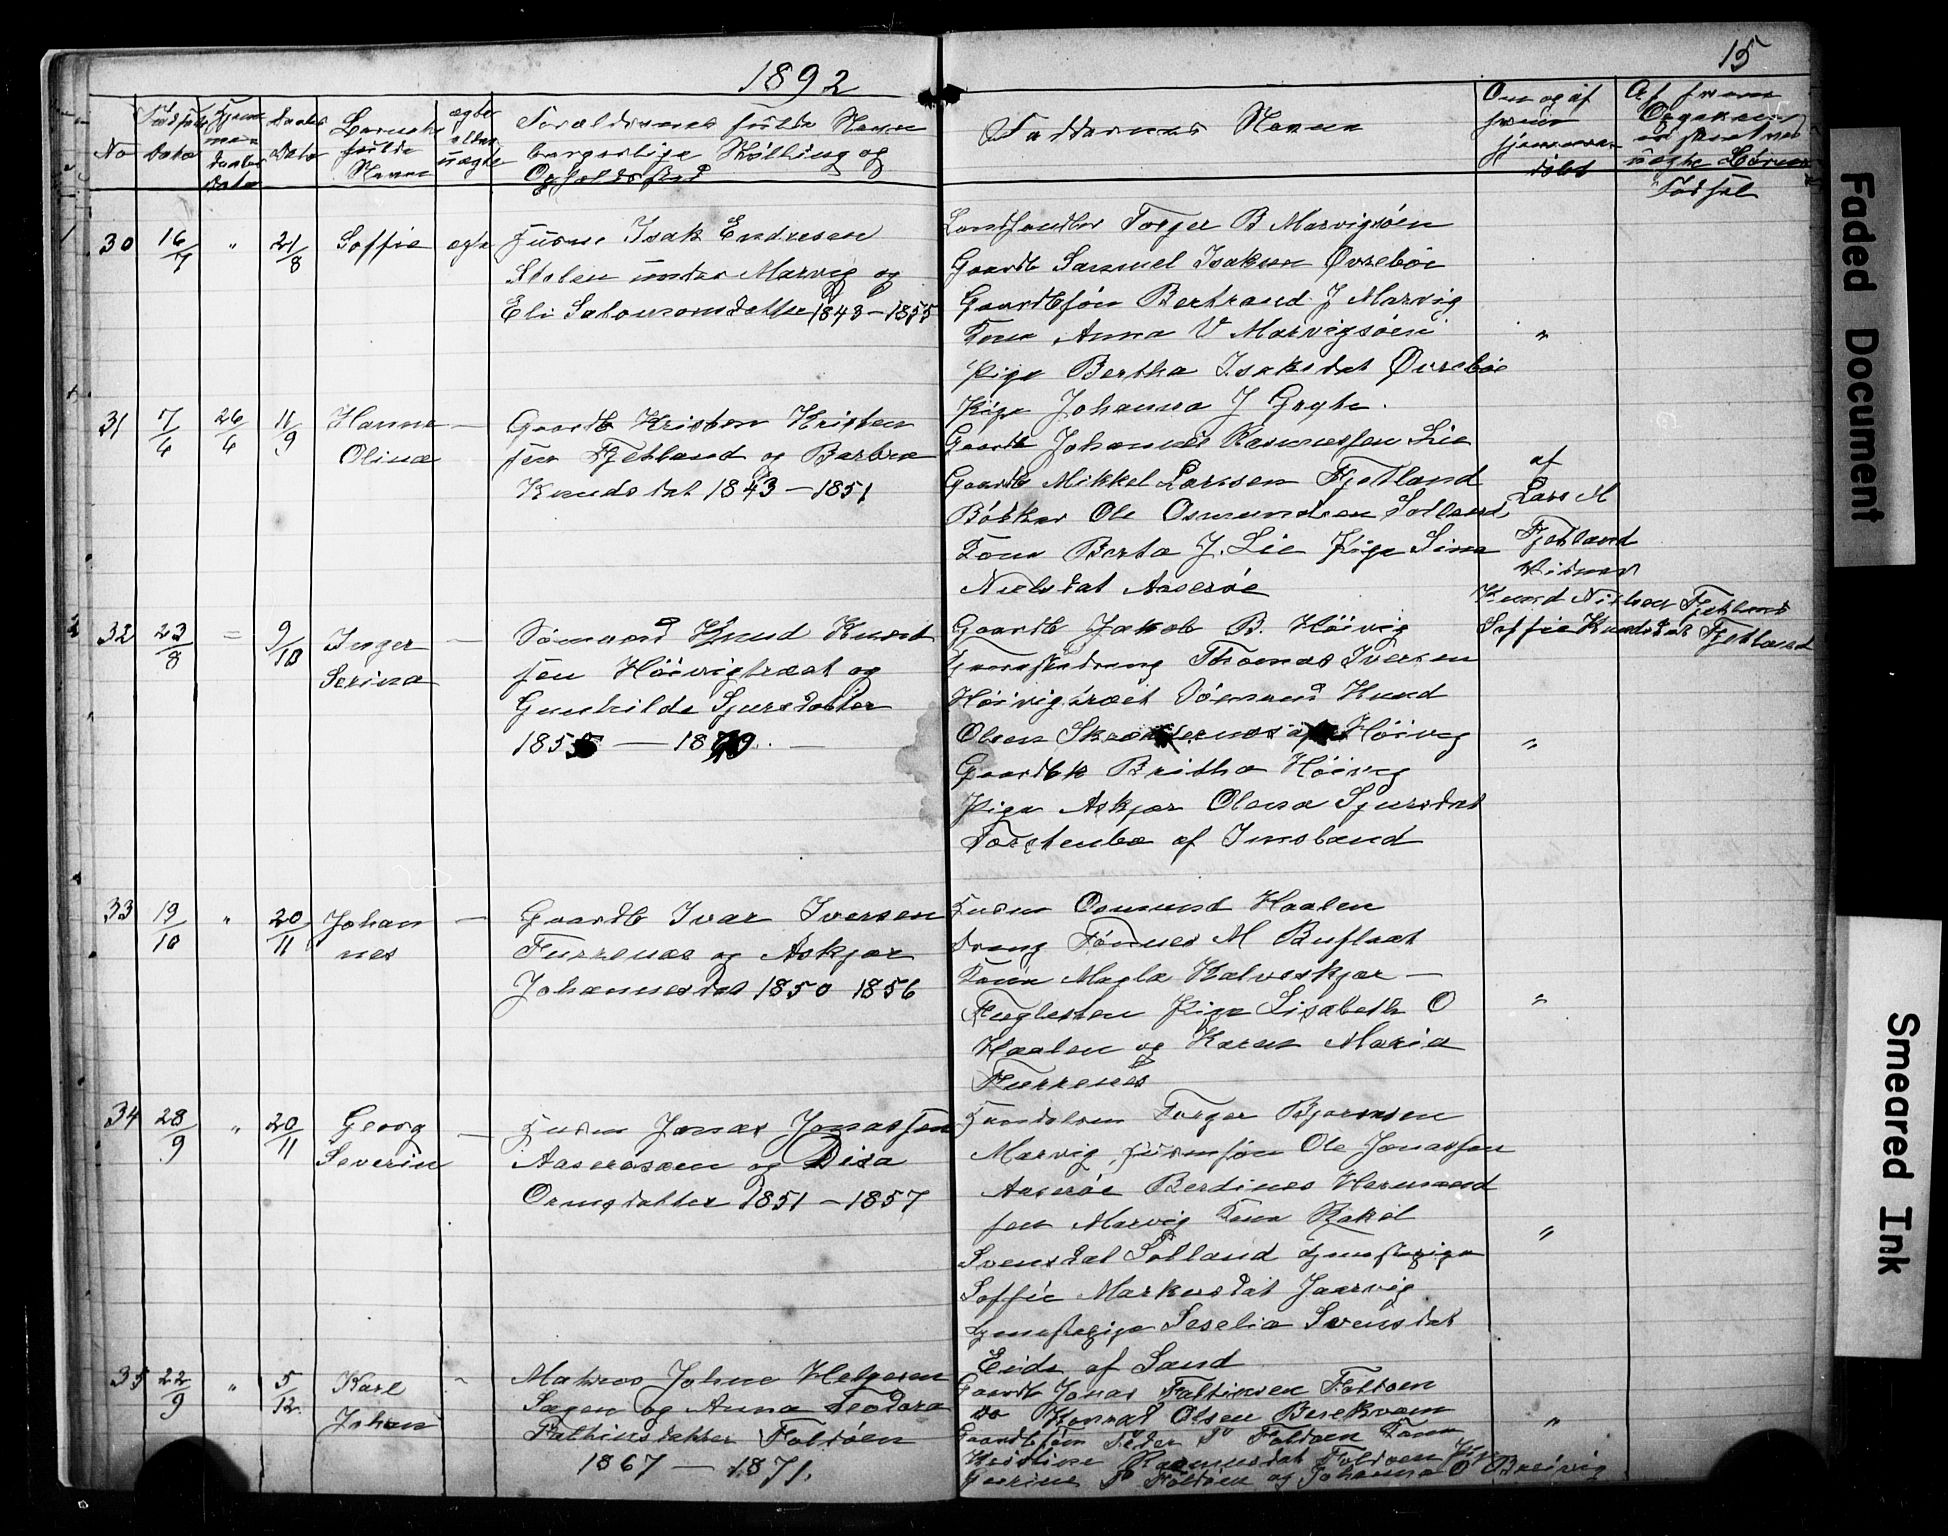 15
1892
No
Fødsels
Dato
Hjem
me
daabs
Dato
Daabs
Dato
Barnets
fulde
Navn
ægte
eller
uægte
Forældrenes fulde Navn
borgerlige Stilling og
Opholdssted
Faddernes Navne
Om og af
hvem
hjemme
døbt
Af hvem
Fødsel
30 16/7 " 21/8 Soffie ægte
Husm Isak Endresen
Stolen under Marvig og
Eli Salomonsdatter 1848 – 1855
Landhandler Torger B Marvigsøen
Gaardb Samuel Isaksen Øvrebøe
Gaardbsøn Bertrand J Marvig
Kone Anna V Marvigsøen "
Pige Bertha Isaksdat Øvrebøe
Pige Johanna J Gryte.
31 7/6 26/6 11/9 Hanne —
Olina
Gaardb Kristen Kristen
sen Fjetland og Barbra
Knudsdat 1843 – 1851
Gaardb Johannes Rasmussen Lie
Gaardb Mikkel Larssen Fjetland
Bødker Ole Osmundsen Solland
Kone Berta J. Lie Pige Sina
Nielsdat Aaserøe
af
Lars M
Fjetland
Vidner
Knud Nielsen Fjetland
Soffie Knudsdat Fjetland
32 23/8 = 9/10 Inger —
Serina
Sømand Knud Knud
sen Høivigtræet og
Gunhilde Sjursdatter
185 — 18 . —
Gaardb Jakob B. Høivig
Thomas Iversen
Høivigtræet Sømand Knud
Olsen Høivig "
Gaardbk Britha Høivig
Pige Askjær Olena Sjursdat
Torstenbø af Imsland
33 19/10 " 20/11 Johan —
nes
Gaardb Ivar Iversen
Furrenæs og Askjær
Johannesdat 1850 1856
Husm Osmund Haalen
Dreng Tønnes M Buflaat
Kone Magla Kalveskjær –
Fuglesten Pige Lisabeth O "
Haalen og Karen Maria
Furrenæs
34 28/9 " 20/11 Georg —
Severin
Husm Jonas Jonassen
Aaserøsøen og Disa
Ormsdatter 1851 – 1857
Landhdm Torger Bjørnsen
Marvig Husmsøn Ole Jonassen
Aaserøe Berdines Hermand
sen Marvig Kone Rakel "
Svensdat Solland Tjenestepige
Soffie Markusdat Jaarvig
Tjenestepige Seselia Svensdat
Eide af Sand
35 22/9 " 5/12 Karl "
Johan
Matros Johne Helgesen
Sagen og Anna Teodora
Faltinsdatter Foldøen
1867 — 1871.
Gaardb Jonas Faltinsen Foldøen
do Konrad Olsen Berekvam "
Gaardbsøn Peder P Foldøen Kone
Kristine Rasmusdat Foldøen Pige
P Foldøen og Johanna O Breivig
Faded Document
Smeared Ink